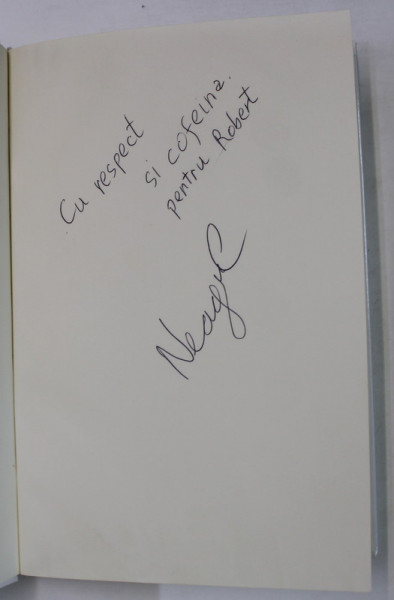 Cu respect
si cofeina.
pentru Robert
Neagu